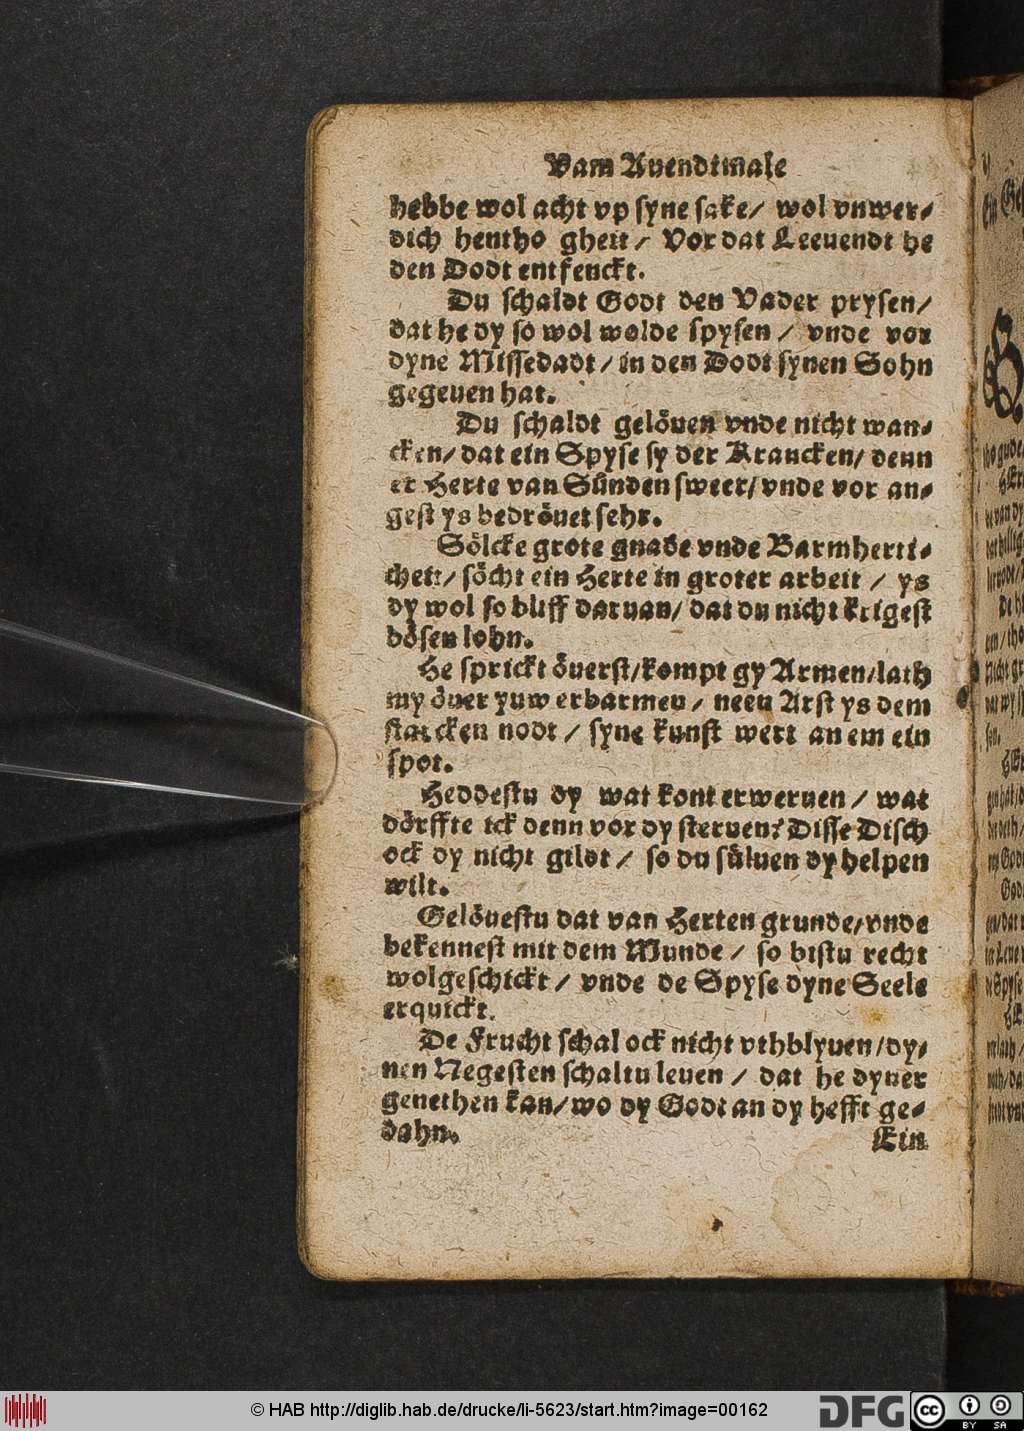 Vam Auendtmale
hebbe wol acht vp syne sake/ wol vnwer⸗
dich hentho gheit/ Vor dat Leeuendt he
den Dodt entfenckt.
Du schaldt Godt den Vader prysen/
dat he dy so wol wolde spysen/ vnde vor
dyne Missedadt/ in den Dodt synen Sohn
gegeuen hat.
Du schaldt gelöuen vnde nicht wan⸗
cken/ dat ein Spyse sy der Krancken/ denn
er Herte van Sünden sweer/ vnde vor an⸗
gest ys bedröuet sehr.
Sölcke grote gnade vnde Barmherti⸗
cheit/ söcht ein Herte in groter arbeit/ ys
dy wol so bliff daruan/ dat du nicht krigest
bösen lohn.
He sprickt öuerst/ kompt gy Armen/ lath
my öuer yuw erbarmen/ neen Arst ys dem
starcken nodt/ syne kunst wert an em ein
spot.
Heddestu dy wat kont erweruen/ wat
dörffte ick denn vor dy steruen? Disse Disch
ock dy nicht gildt/ so du süluen dy helpen
wilt.
Gelöuestu dat van Herten grunde/ vnde
bekennest mit dem Munde/ so bistu recht
wolgeschickt/ vnde de Spyse dyne Seele
erquickt.
De Frucht schal ock nicht vthblyuen/ dy⸗
nen Negesten schaltu leuen/ dat he dyner
genethen kan/ wo dy Godt an dy hefft ge⸗
dahn.
Ein
© HAB http://diglib.hab.de/drucke/li-5623/start.htm?image=00162
DFG
cc
BY SA